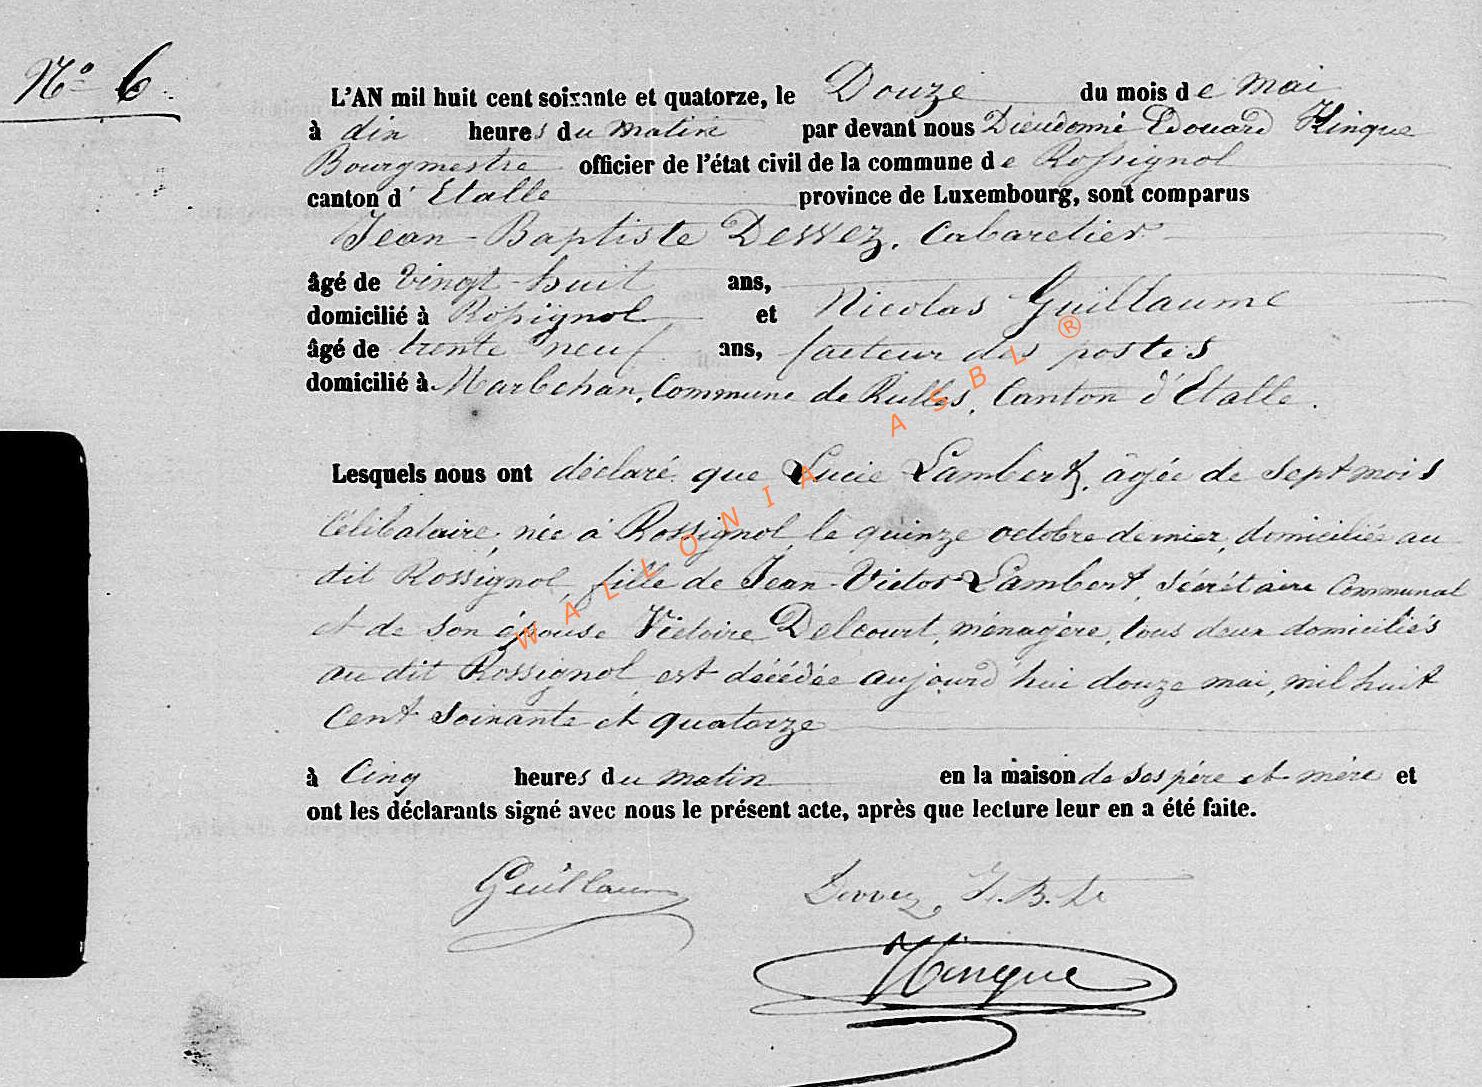 N° 6.
L'AN mil huit cent soixante et quatorze, le Douze du mois de mai
à dix heures du matin par devant nous Dieudonné Edouard Hinque
Bourgmestre officier de l'état civil de la commune de Rossignol
canton d'Etalle province de Luxembourg, sont comparus
Jean-Baptiste Dessez, Cabaretier
âgé de vingt-huit ans,
domicilié à Rossignol et Nicolas Guillaume
âgé de trente neuf ans, facteur des postes
domicilié à Marbehan, Commune de Rulles, Canton d'Etalle.
Lesquels nous ont déclaré que Lucie Lambert, âgée de sept mois
Célibataire, née à Rossignol le quinze octobre dernier, domiciliée au
dit Rossignol, fille de Jean-Victor Lambert, sécrétaire Communal
et de son épouse Victoire Delcourt, ménagère, tous deux domiciliés
au dit Rossignol, est décédée aujourd'hui douze mai, mil huit
cent soixante et quatorze
à Cinq heures du matin en la maison de ses père et mère et
ont les déclarants signé avec nous le présent acte, après que lecture leur en a été faite.
Guillaume Dessez, J.B.te
Hinque
WALLONIA ASBL ®